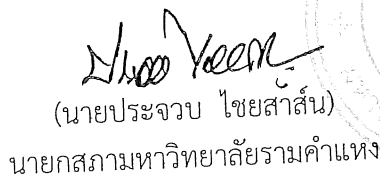 (นายประจวบ ไชยสาส์น)
นายกสภามหาวิทยาลัยรามคำแหง